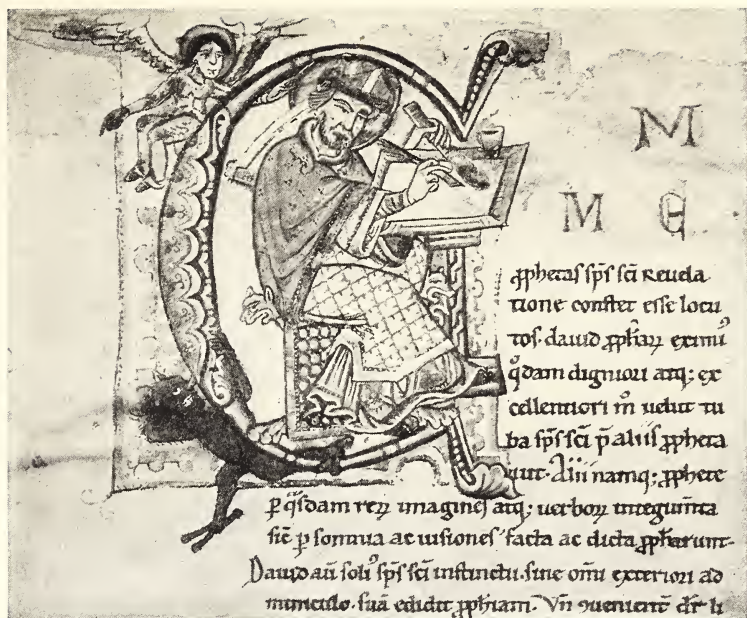 M
M E
ꝓphetas sp̄s sc̄i Reuela
tione constet esse locu
tos. dauid ꝓph̄arꝝ eximi᷒
q̊dam digniori atq; ex
cellentiori m̊ uelut tu
ba sp̄s sc̄i p̄ aliis ꝓpheta
uit. Alii namq; ꝓphete
ꝑ q̊sdam rerꝝ imagines atq; uerborꝝ integum̄ta
sic̄ ꝑ somnia ac uisiones facta ac dicta ꝓph̄arunt.
Dauid aū soli᷒ sp̄s sc̄i instinctu. sine om̄i exteriori ad
miniculo. suā edidit ꝓph̄iam. Vn̄ ꝯuenient̄ dr̄ li